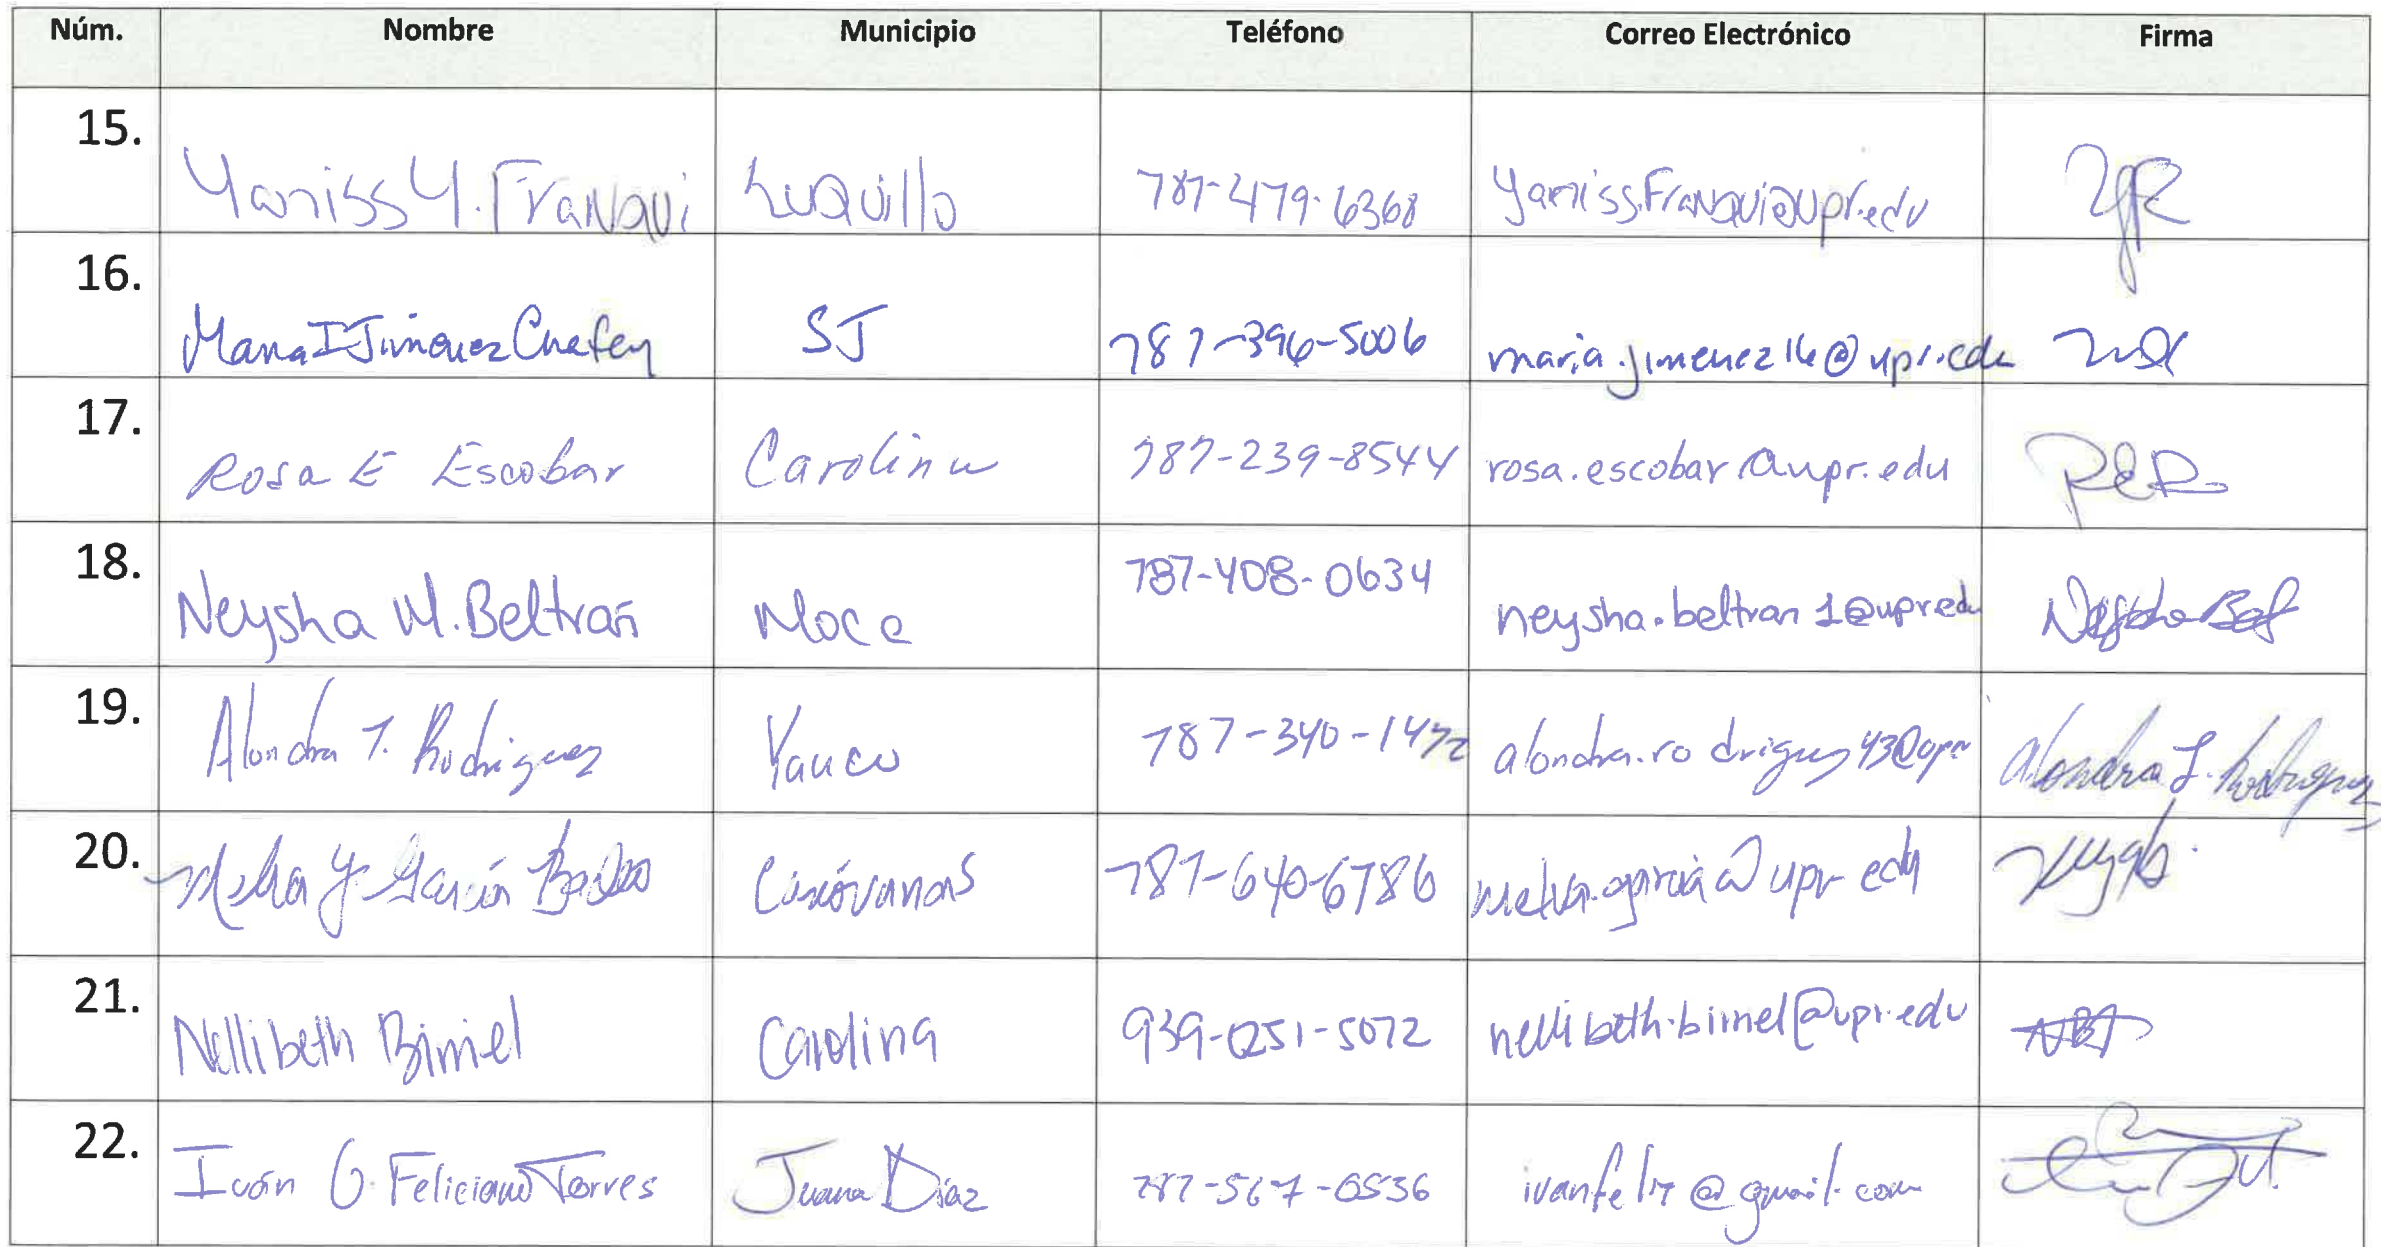 Núm. Nombre Municipio Teléfono Correo Electrónico Firma
15. Yaniss Y. Franqui Luquillo 787-479-6368 yaniss.Franqui@upr.edu
16. Maria I Jimenez Chafey SJ 787-396-5006 maria.jimenez16@upr.edu
17. Rosa E Escobar Carolina 787-239-8544 rosa.escobar@upr.edu
18. Neysha M. Beltran Moca 787-408-0634 neysha.beltran1@upr.edu
19. Alondra T. Rodriguez Yauco 787-340-1472 alondra.rodriguez43@upr Alondra T. Rodriguez
20. Melva Y. García Canóvanas 787-640-6786 melva.garcia@upr.edu
21. Nellibeth Bimel Carolina 939-251-5072 nellibeth.bimel@upr.edu
22. Iván G. Feliciano Torres Juana Díaz 787-567-0536 @gmail.com